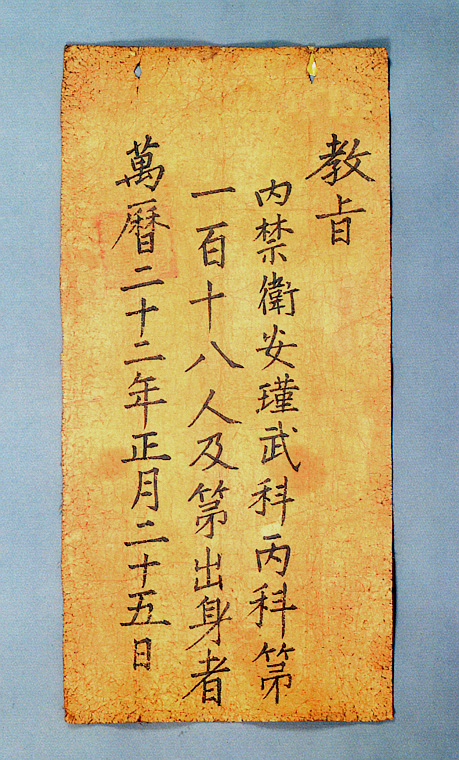 教旨
內禁衛安瑾武科丙科第
一百十八人及第出身者
萬曆二十二年正月二十五日